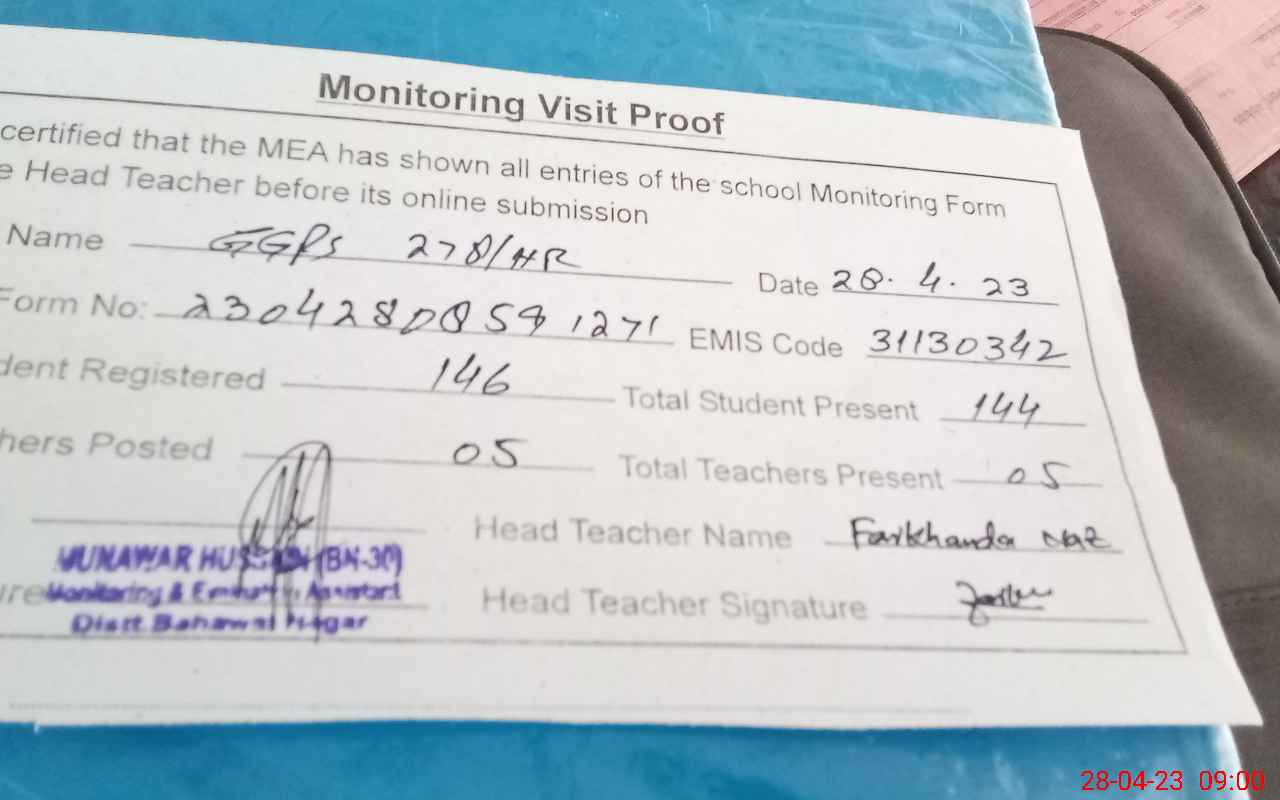 Monitoring Visit Proof
certified that the MEA has shown all entries of the school Monitoring Form
e Head Teacher before its online submission
Name GGPS 278/HR Date 28.4.23
Form No: 23042808591271 EMIS Code 31130342
dent Registered 146 Total Student Present 144
hers Posted 05 Total Teachers Present 05
Head Teacher Name Farkhanda Naz
MUNAWAR HUSSAIN (BN-30)
ure Monitoring & Evaluation Assistant Head Teacher Signature
Distt Bahawal Nagar
28-04-23 09:00